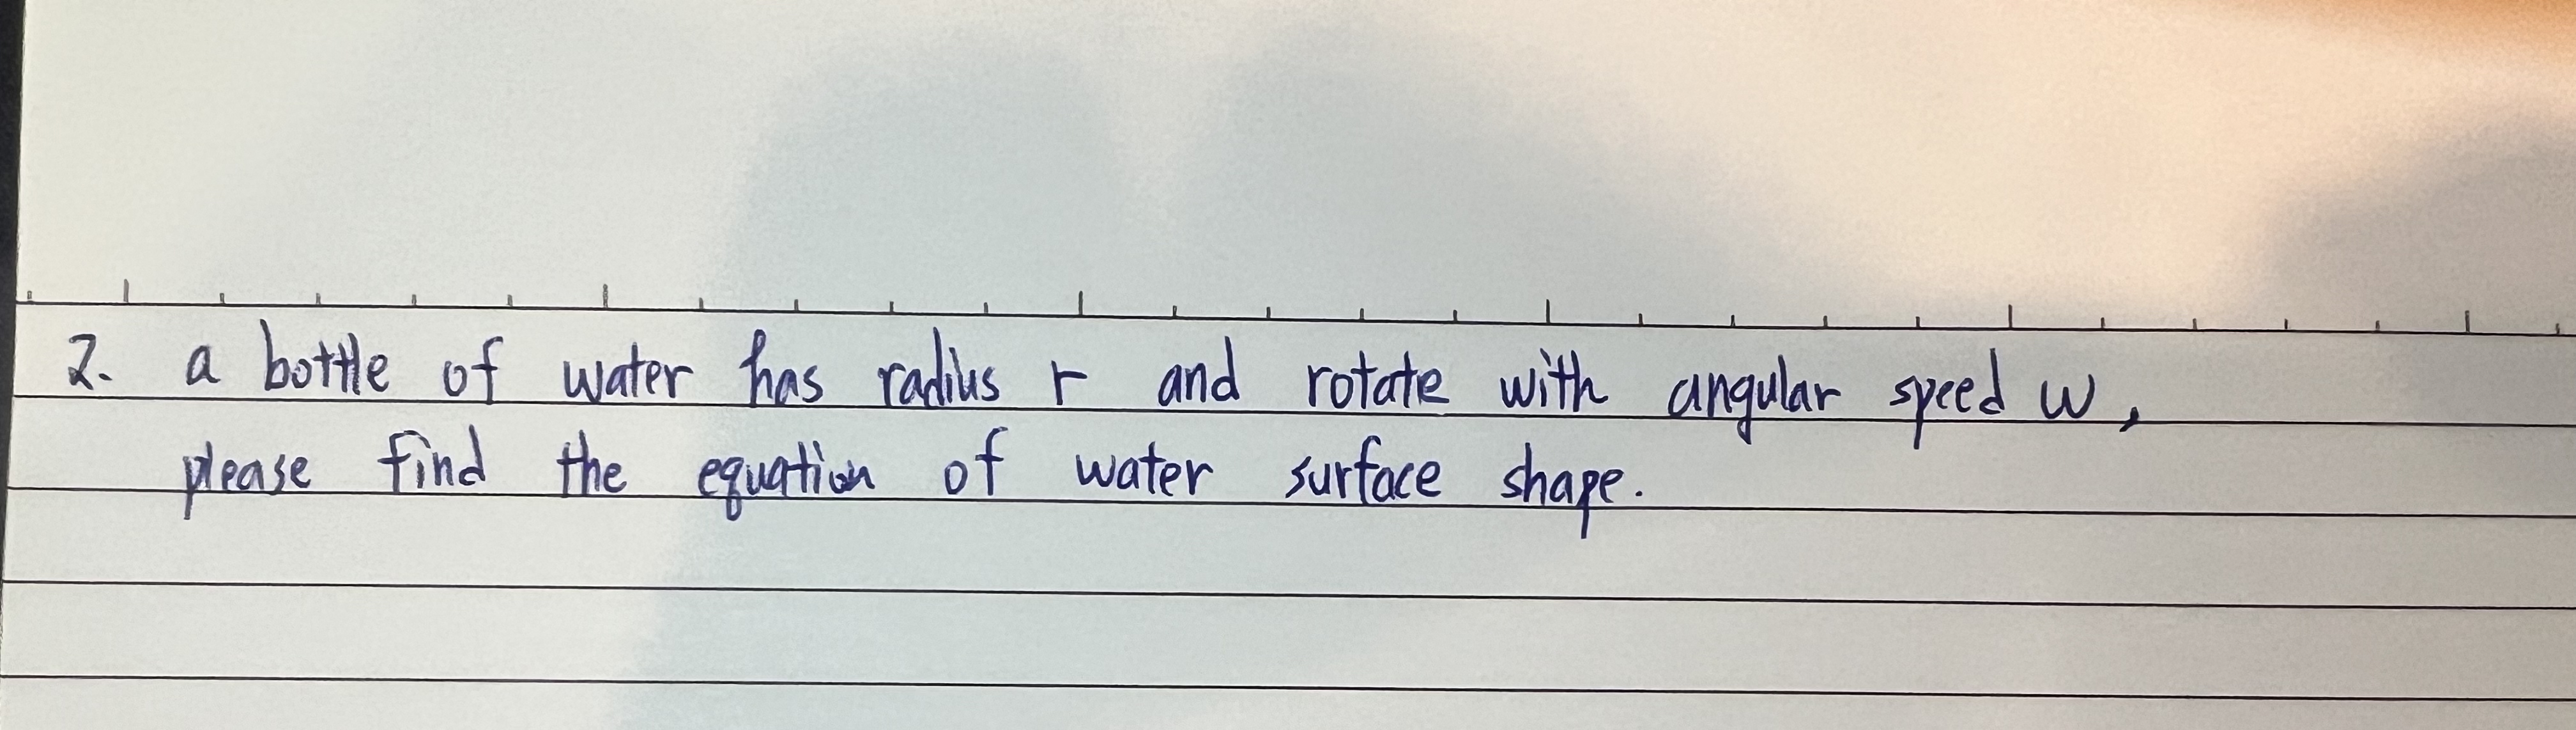 2. a bottle of water has radius r and rotate with angular speed w,
please find the equation of water surface shape.